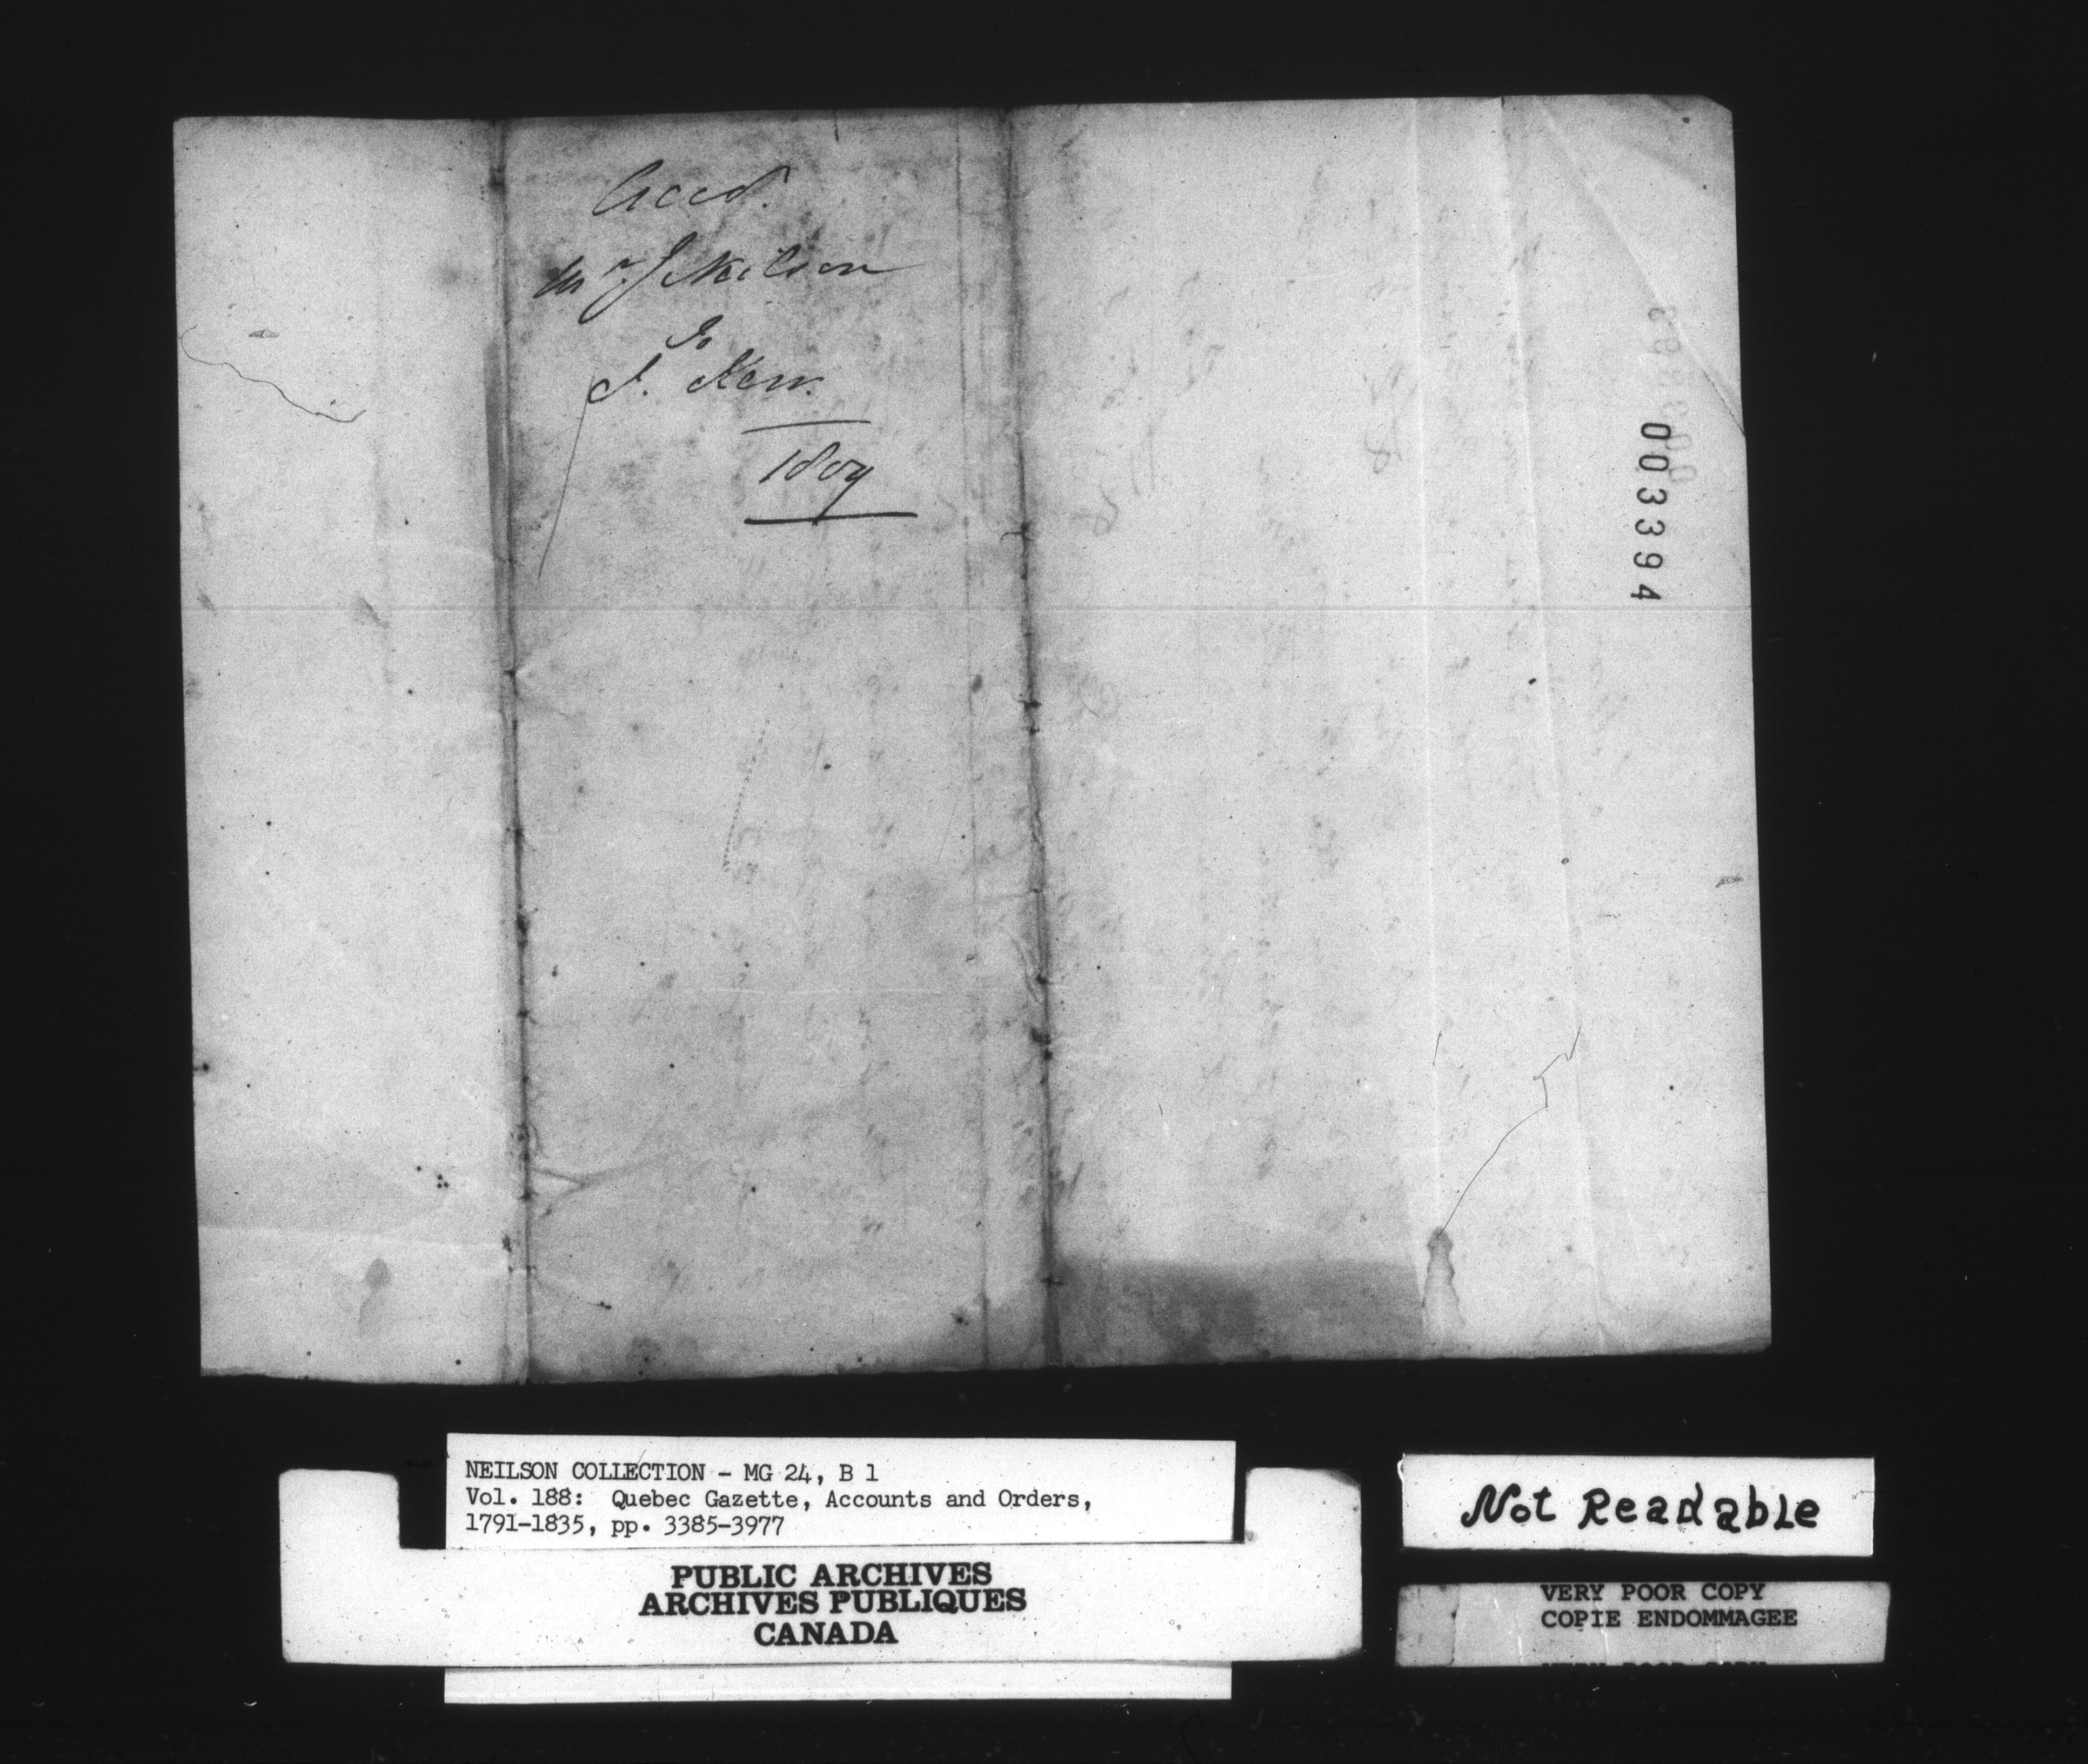 Acct.
Mr J Neilson
To
J. Kerr.
1809
003394
NEILSON COLLECTION - MG 24, B 1
Vol. 188: Quebec Gazette, Accounts and Orders,
1791-1835, pp. 3385-3977
PUBLIC ARCHIVES
ARCHIVES PUBLIQUES
CANADA
Not Readable
VERY POOR COPY
COPIE ENDOMMAGEE